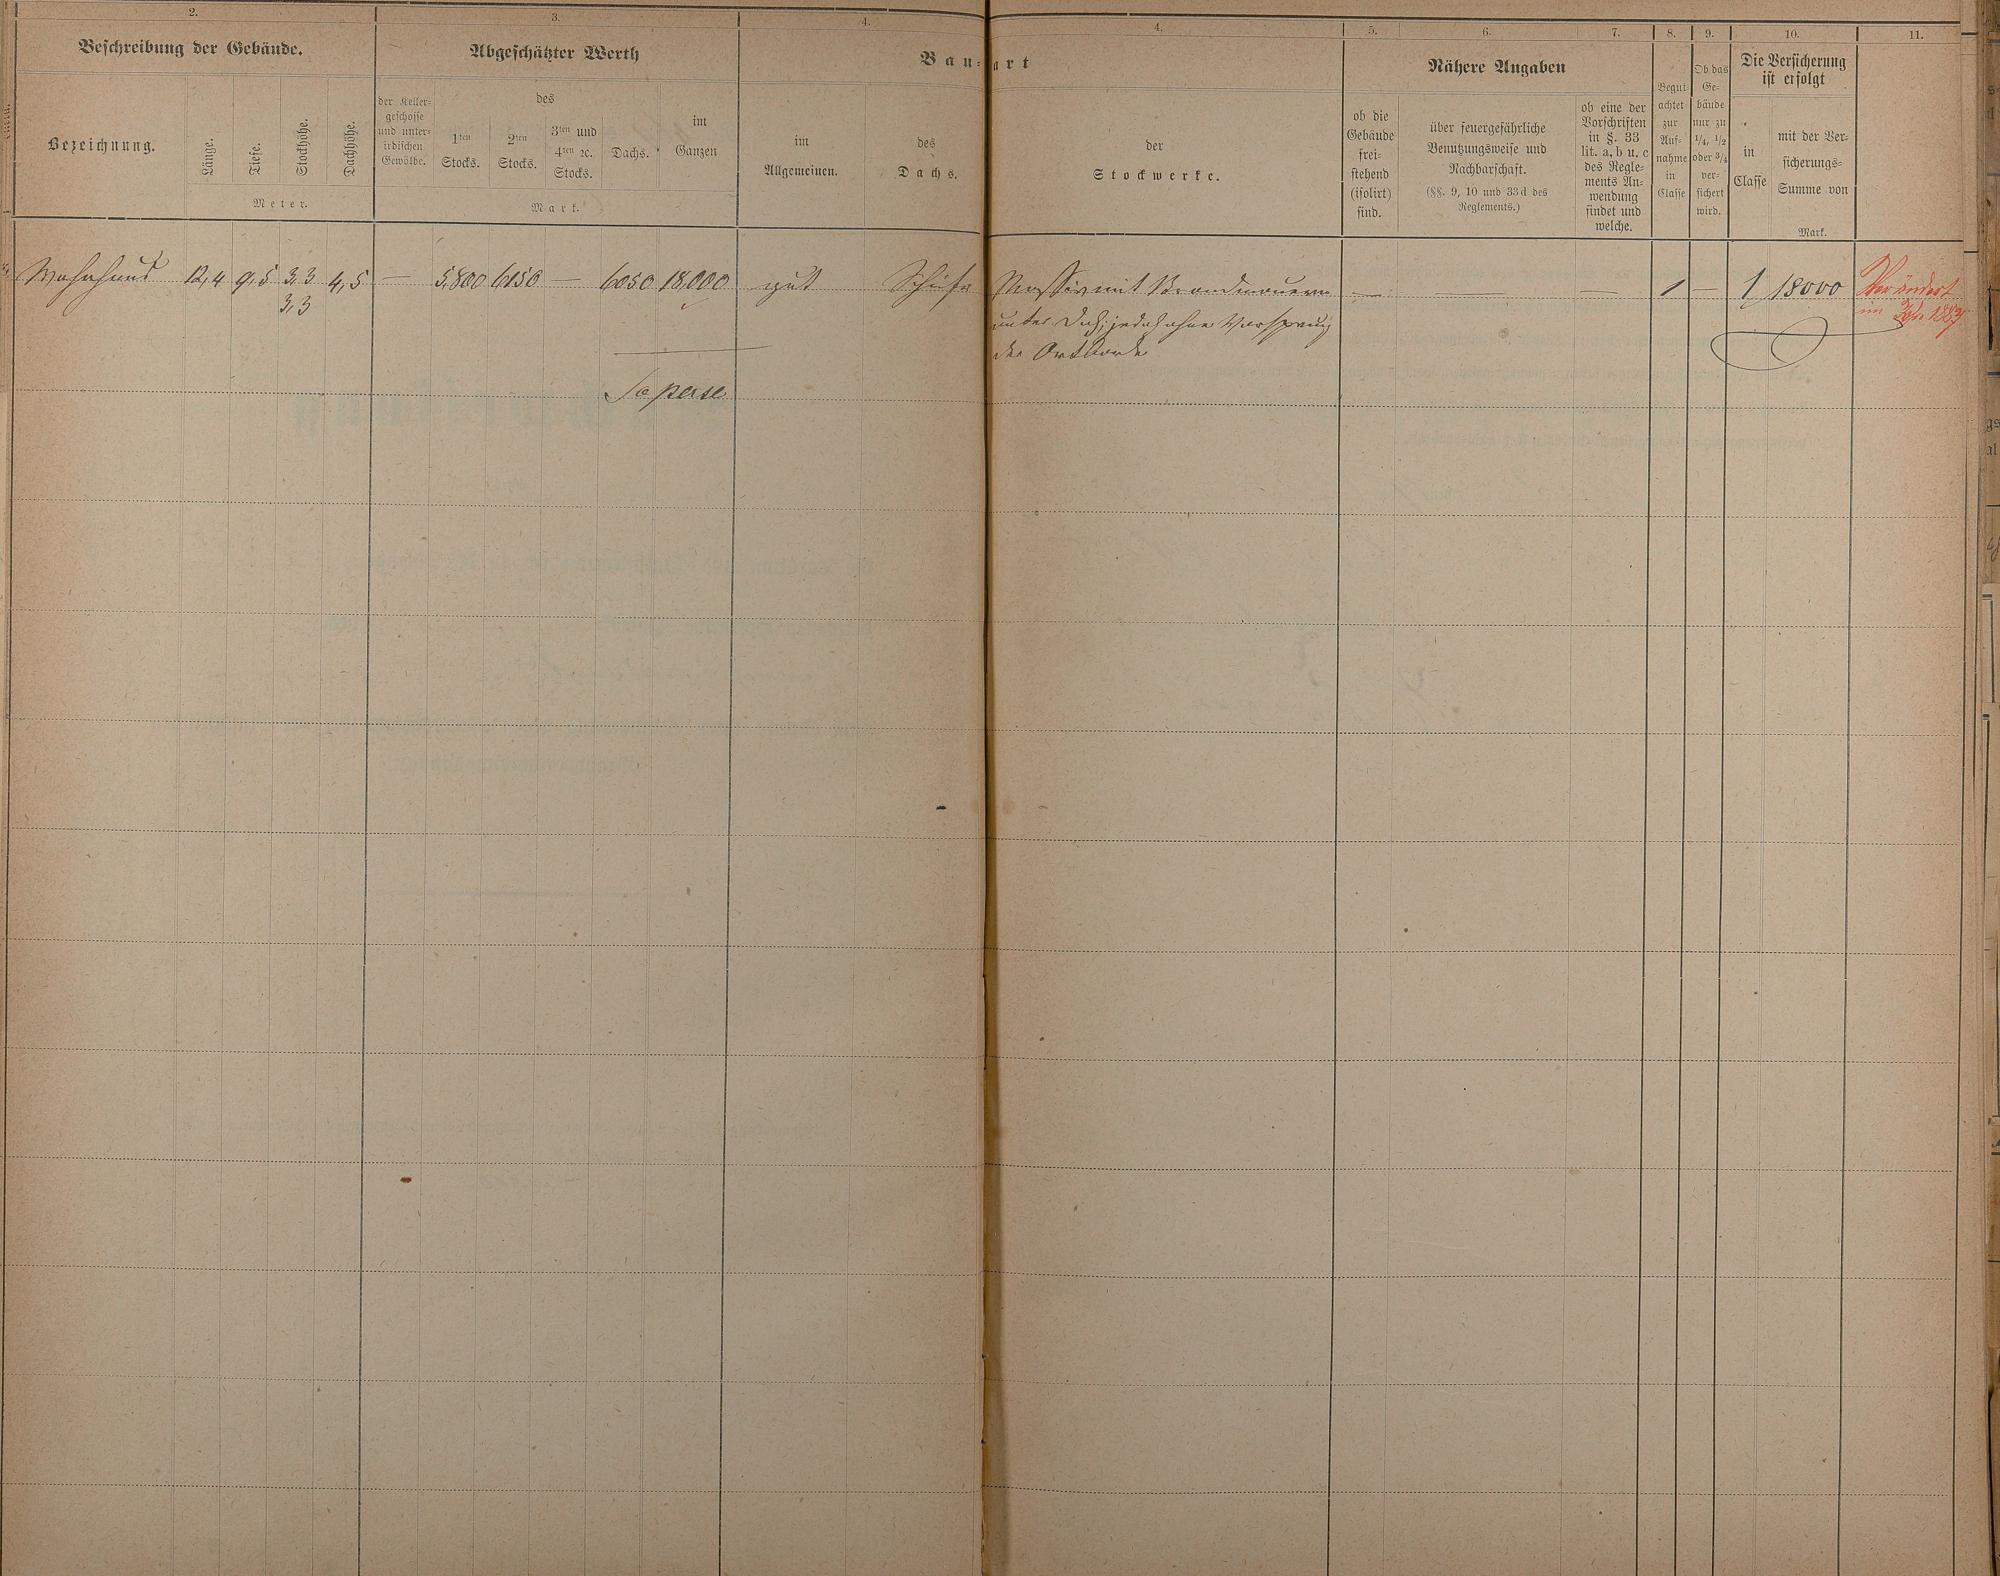 2.
3.
4.
4.
5.
6.
7.
8.
9.
10.
11.
Beschreibung der Gebäude.
Abgeschätzter Werth
Bau-
art
Nähere Angaben
Die Versicherung
ist erfolgt
Bezeichnung.
Länge.
Tiefe.
Stockhöhe.
Dachhöhe.
Meter.
der Keller-
geschosse
und unter-
irdischen
Gewölbe.
des
1ten
Stocks.
2ten
Stocks.
3ten und
4ten ꝛc.
Stocks.
Dachs.
im
Ganzen
Mark.
im
Allgemeinen.
des
Dachs.
der
Stockwerke.
ob die
Gebäude
frei-
stehend
(isolirt)
sind.
über feuergefährliche
Benutzungsweise und
Nachbarschaft.
(§§. 9, 10 und 33d des
Reglements.)
ob eine der
Vorschriften
in §. 33
lit. a, b u. c
des Regle-
ments An-
wendung
findet und
welche.
Begut
achtet
zur
Auf-
nahme
in
Classe
Ob das
Ge-
bäude
nur zu
1/4, 1/2
oder 3/4
ver-
sichert
wird.
in
Classe
mit der Ver-
sicherungs-
Summe von
Mark.
Wohnhaus 12,4 9,5 3,3 4,5 — 5800 6150 — 6050 18,000 gut Schiefer Massiv mit Brandmauern — — 1 — 1 18000 Verändert
3,3
unter Dach, jedoch ohne Vorsprung
im 1887
der Ortborde
per se